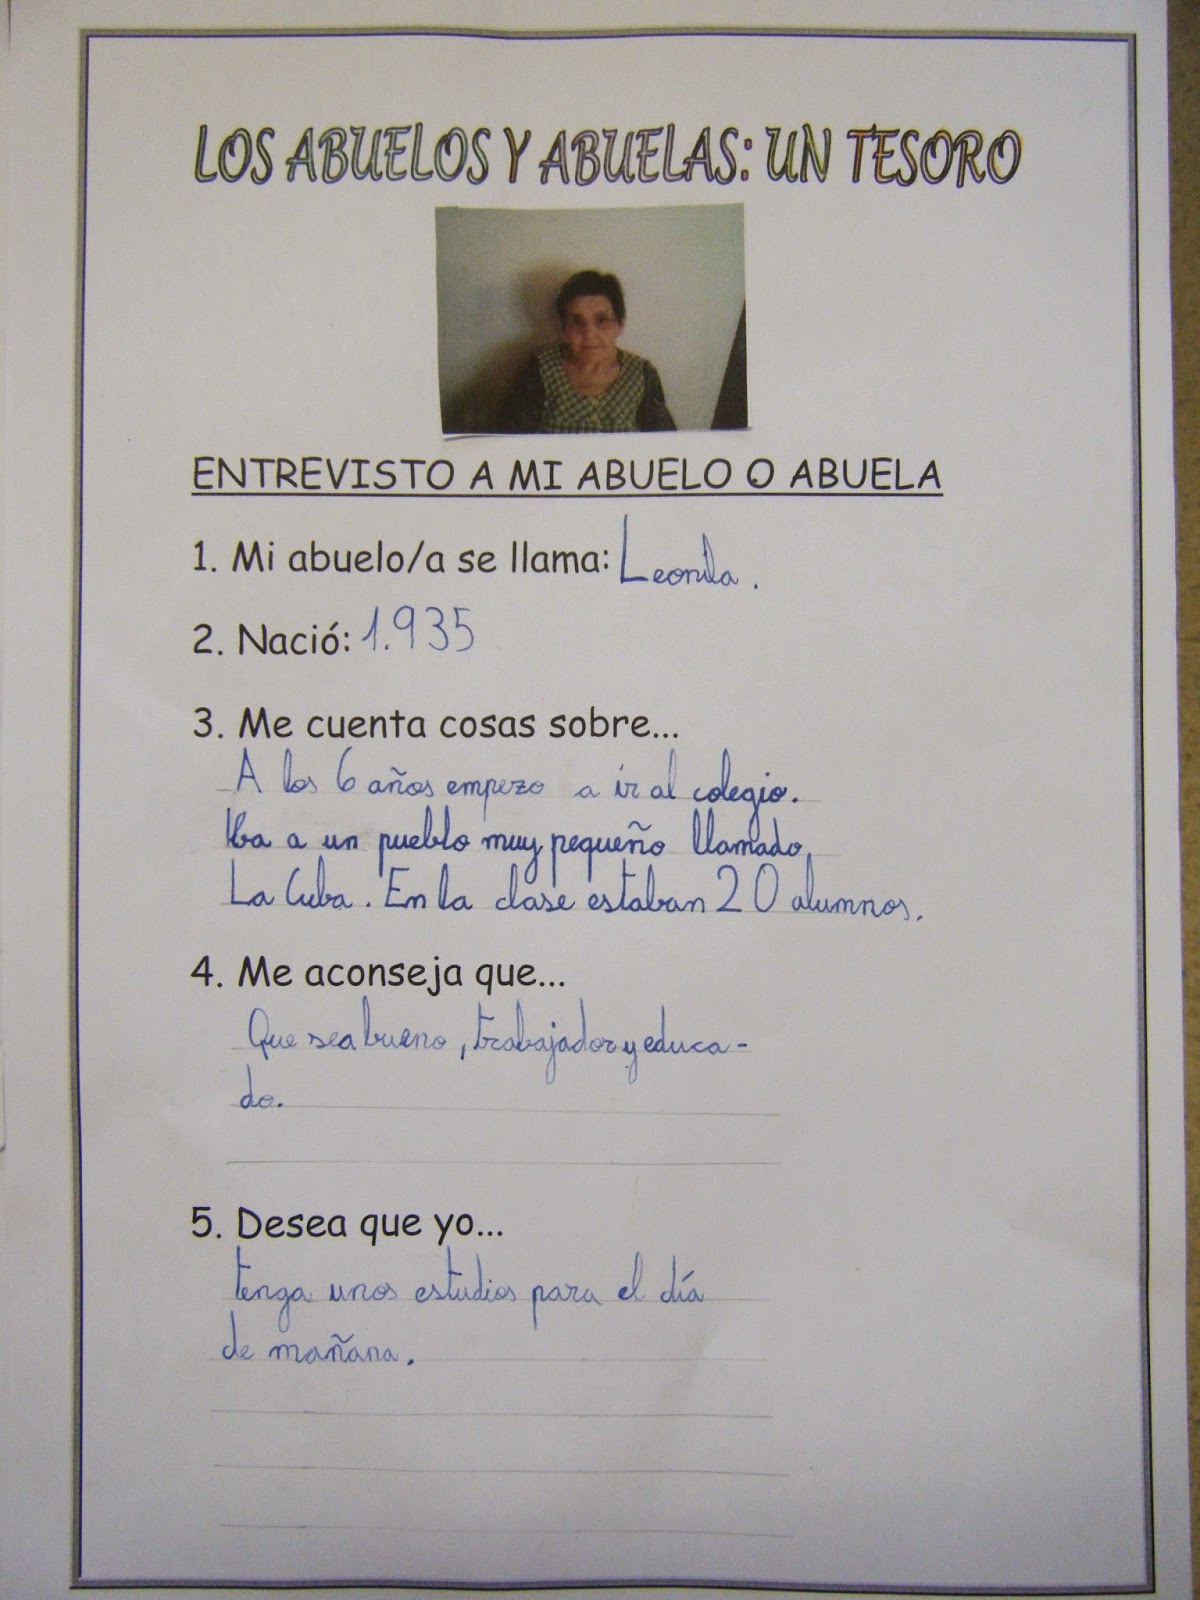 LOS ABUELOS Y ABUELAS: UN TESORO
ENTREVISTO A MI ABUELO O ABUELA
1. Mi abuelo/a se llama: Leonila.
2. Nació: 1.935
3. Me cuenta cosas sobre...
A los 6 años empezo a ir al colegio.
Iba a un pueblo muy pequeño llamado
La Cuba. En la clase estaban 20 alumnos.
4. Me aconseja que...
Que sea bueno, trabajador y educa-
do.
5. Desea que yo...
tenga unos estudios para el día
de mañana.